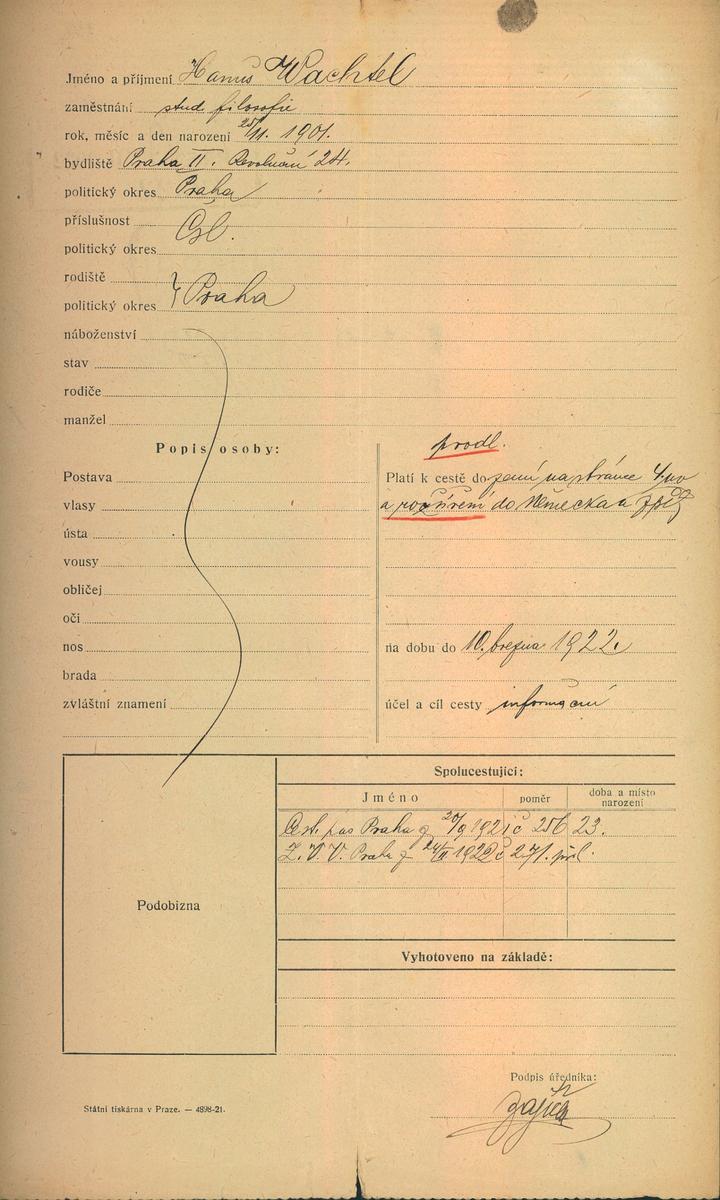 Jméno a příjmení Hanuš Wachtel
zaměstnání stud. filosofie
rok, měsíc a den narození 25/11. 1901.
bydliště Praha II. Revoluční 24.
politický okres Praha
příslušnost Čsl.
politický okres
rodiště
politický okres } Praha
náboženství
stav
rodiče
manžel
Popis osoby:
Postava
vlasy
ústa
vousy
obličej
oči
nos
brada
zvláštní znamení
prodl.
Platí k cestě do zemí na stránce 4. uv
a rozšíření do Německa a zpět
na dobu do 10. března 1922.
účel a cíl cesty informační
Spolucestující:
Jméno poměr doba a místo narození
Cest. pas Praha z 20/9 1921 č 256 23.
Z. V. V. Praha z 24/II 1922 č 271. příl.
Podobizna
Vyhotoveno na základě:
Podpis úředníka:
Státní tiskárna v Praze. — 4898-21.